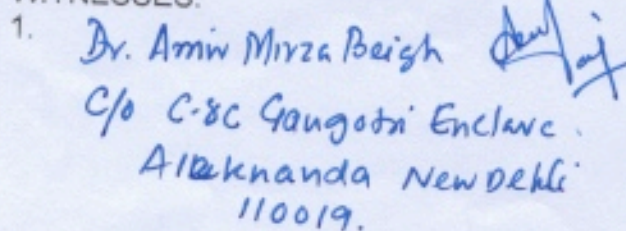 WITNESSES:
1.
Dr. Amin Mirza Beigh
C/o C-8C Gangotri Enclave.
Alaknanda New Delhi
110019.